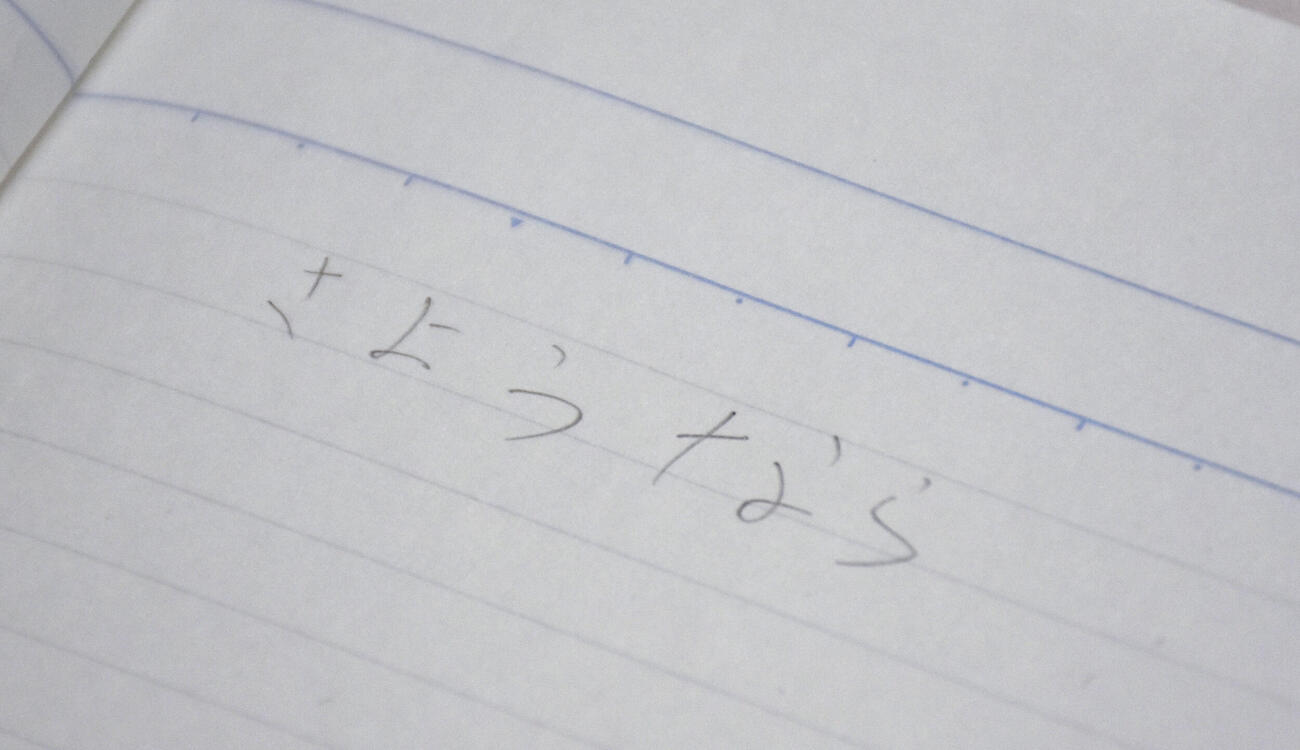 さようなら